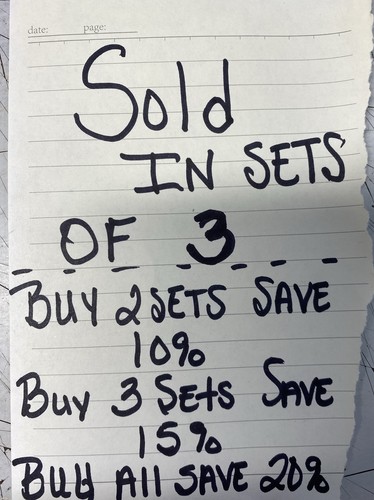 date: page:
Sold
IN SETS
OF 3
BUY 2 SETS SAVE
10%
Buy 3 Sets SAVE
15%
BUY All SAVE 20%